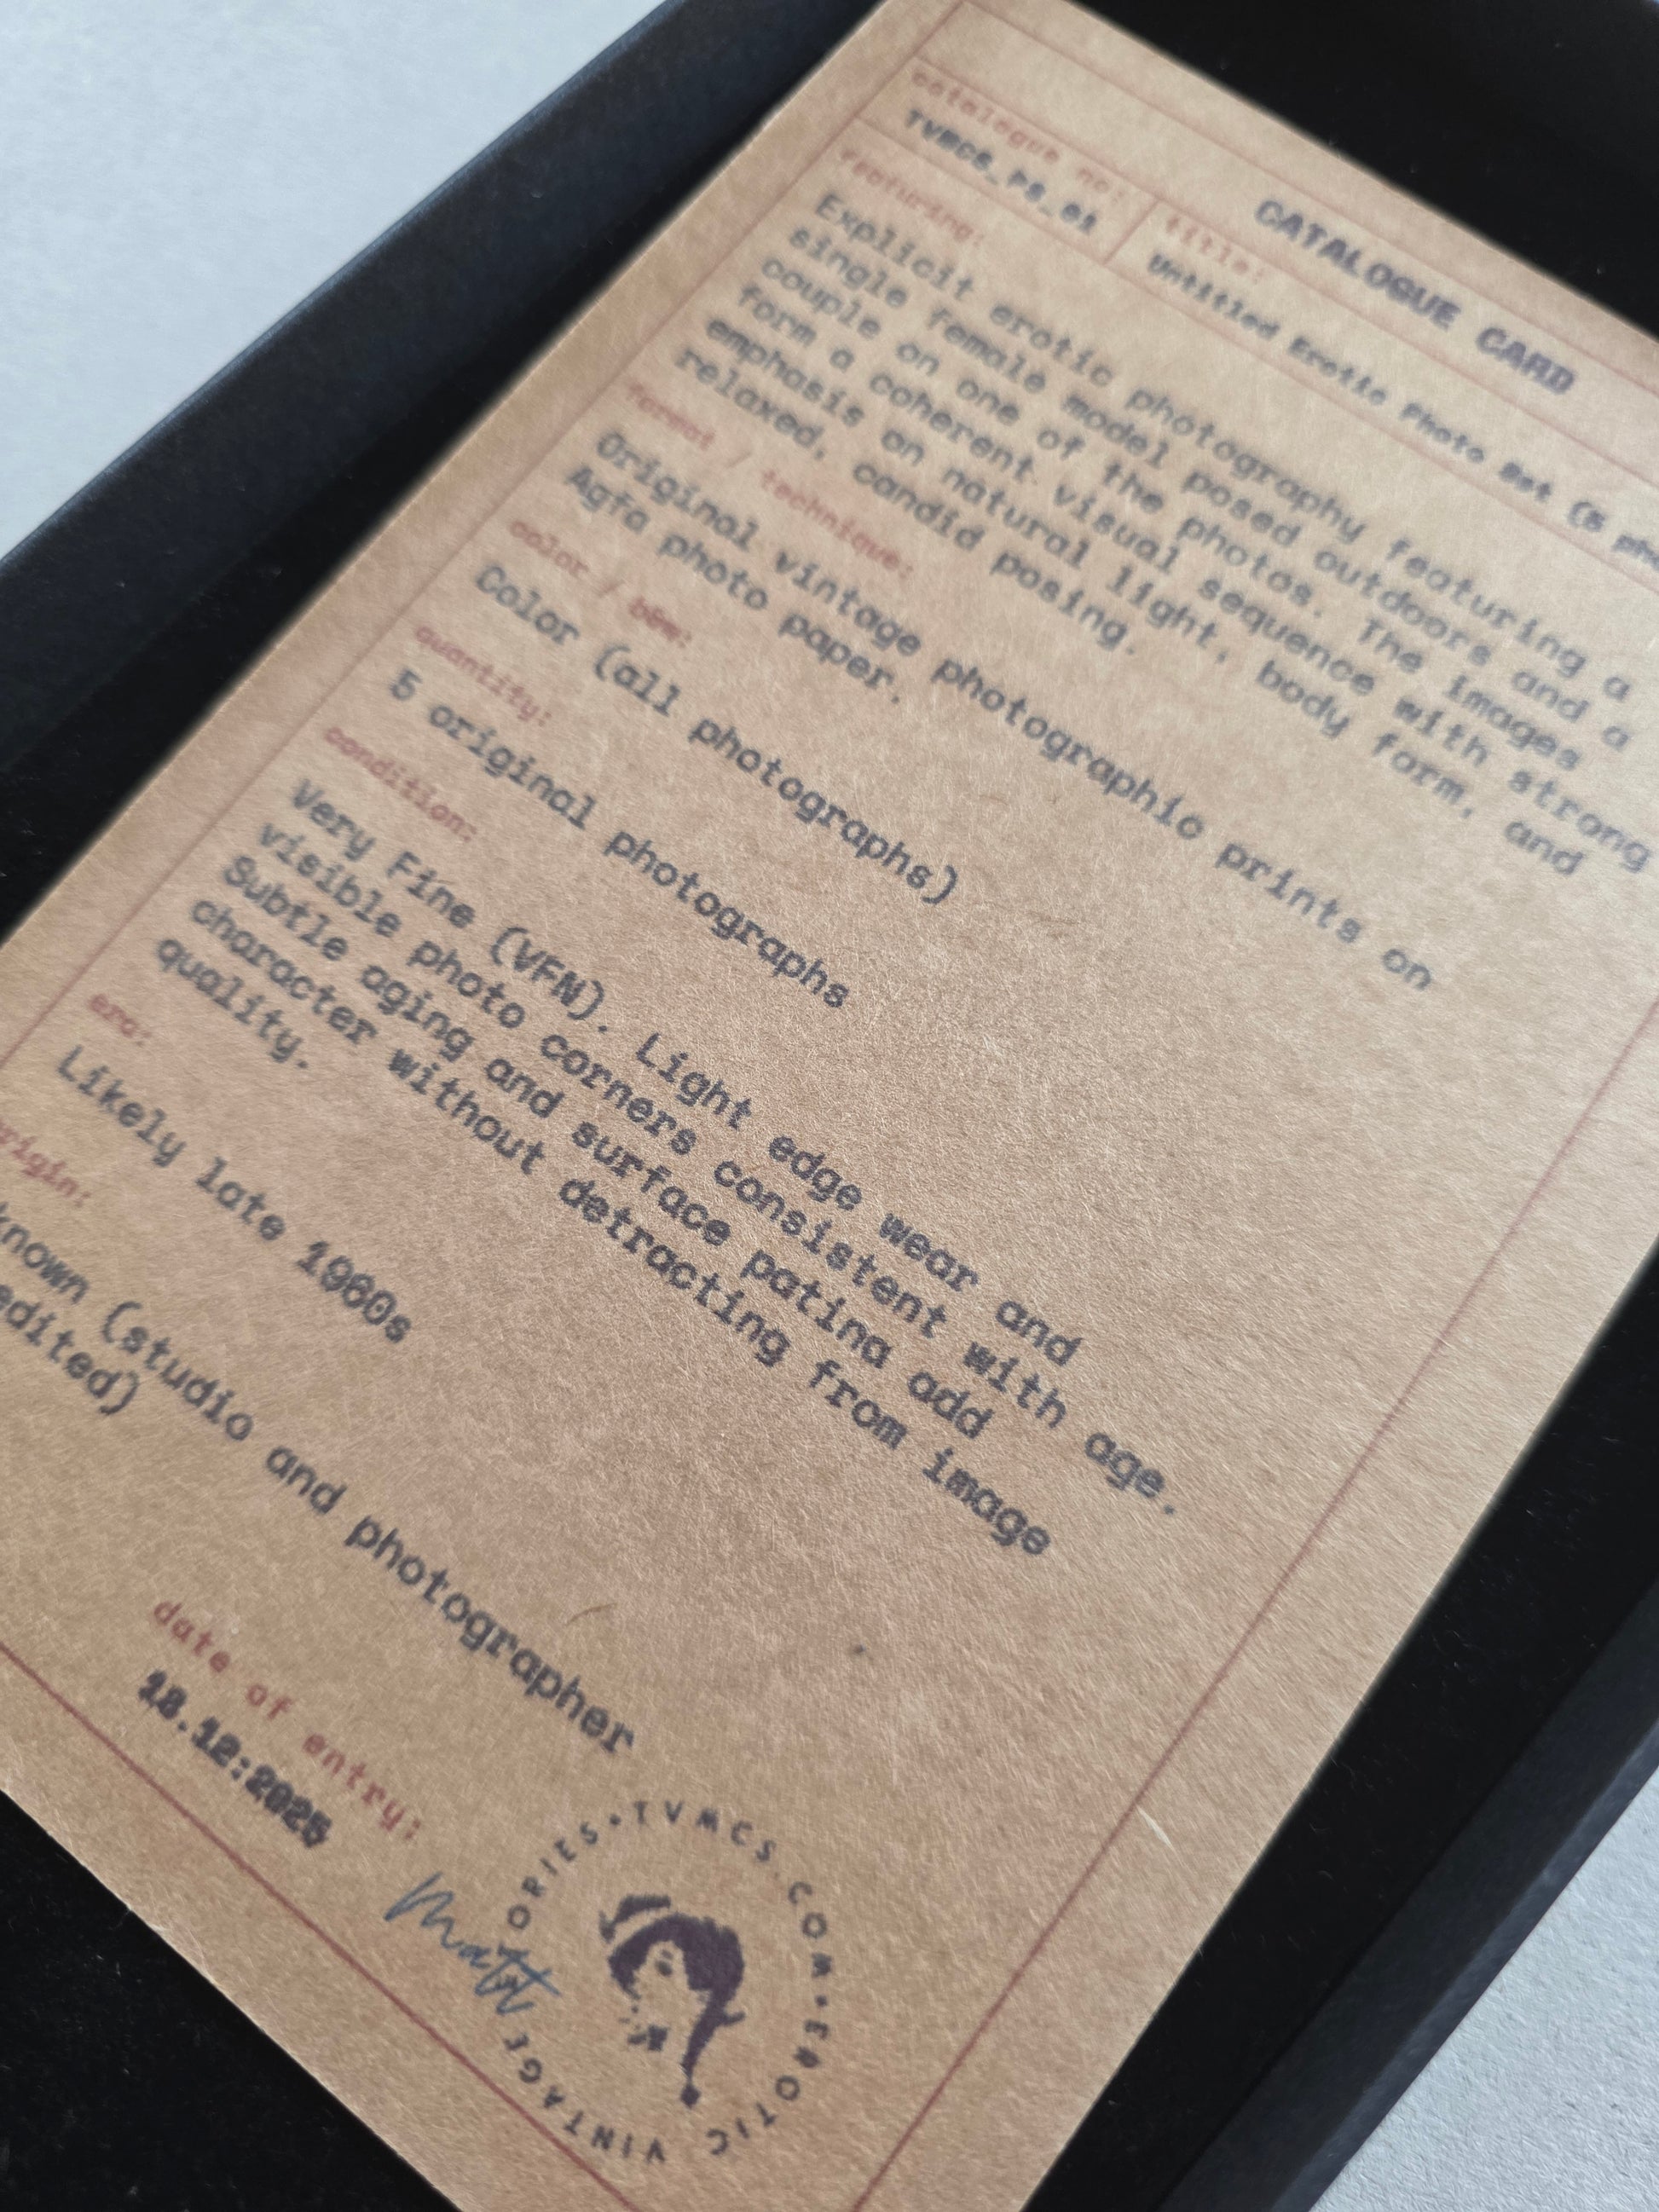 CATALOGUE CARD
catalogue no:
TVMCS_PS_01
title:
Untitled Erotic Photo Set (5 pho
featuring:
Explicit erotic photography featuring a
single female model posed outdoors and a
couple on one of the photos. The images
form a coherent visual sequence with strong
emphasis on natural light, body form, and
relaxed, candid posing.
format / technique:
Original vintage photographic prints on
Agfa photo paper.
color / b&w:
Color (all photographs)
quantity:
5 original photographs
condition:
Very Fine (VFN). Light edge wear and
visible photo corners consistent with age.
Subtle aging and surface patina add
character without detracting from image
quality.
era:
Likely late 1960s
rigin:
known (studio and photographer
edited)
date of entry:
18.12:2025
Matt
TVMCS.COM • EROTIC VINTAGE ORIES •